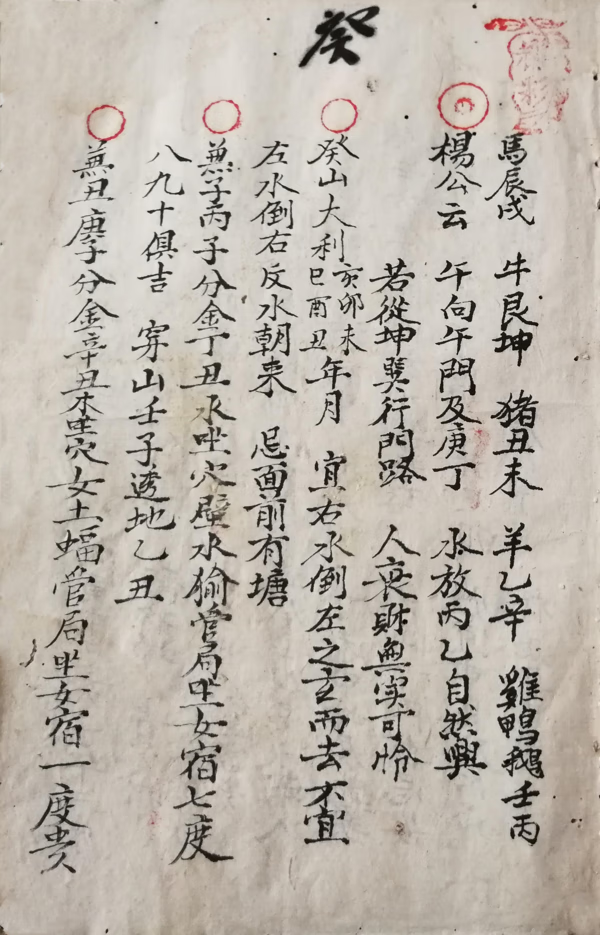 癸
馬辰戌 牛艮坤 猪丑未 羊乙辛 雞鴨鵝壬丙
楊公云 午向午門及庚丁 水放丙乙自然興
若從坤巽行門路 人衰財輿実可怜
癸山大利亥卯未巳酉丑年月 宜右水倒左之玄而去 不宜
左水倒右反水朝来 忌面前有塘
兼子丙子分金丁丑水坐穴壁水㺄管局坐女宿七度
八九十俱吉 穿山壬子透地乙丑
兼丑庚子分金辛丑木坐穴女土蝠管局坐女宿一度贵